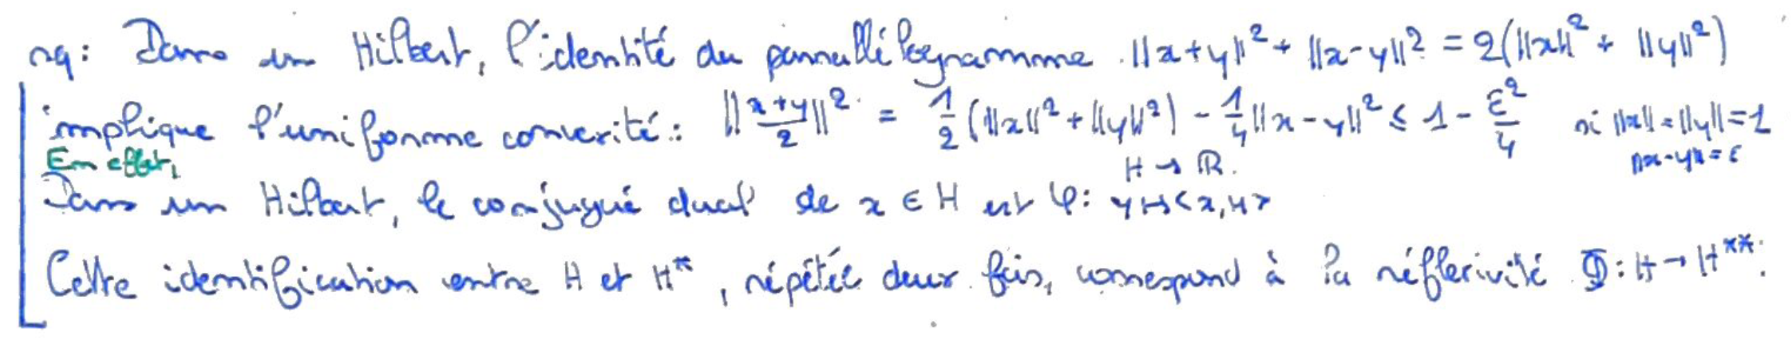 rq: Dans un Hilbert, l'identité du parallélogramme ||x+y||² + ||x-y||² = 2(||x||² + ||y||²)
implique l'uniforme convexité: ||(x+y)/2||² = 1/2 (||x||² + ||y||²) - 1/4 ||x-y||² ≤ 1 - ε²/4 si ||x|| = ||y|| = 1
||x-y|| = ε
En effet,
H → ℝ.
Dans un Hilbert, le conjugué dual de x ∈ H est φ: y ↦ <x,y>
Cette identification entre H et H*, répétée deux fois, correspond à la réflexivité Φ: H → H**.